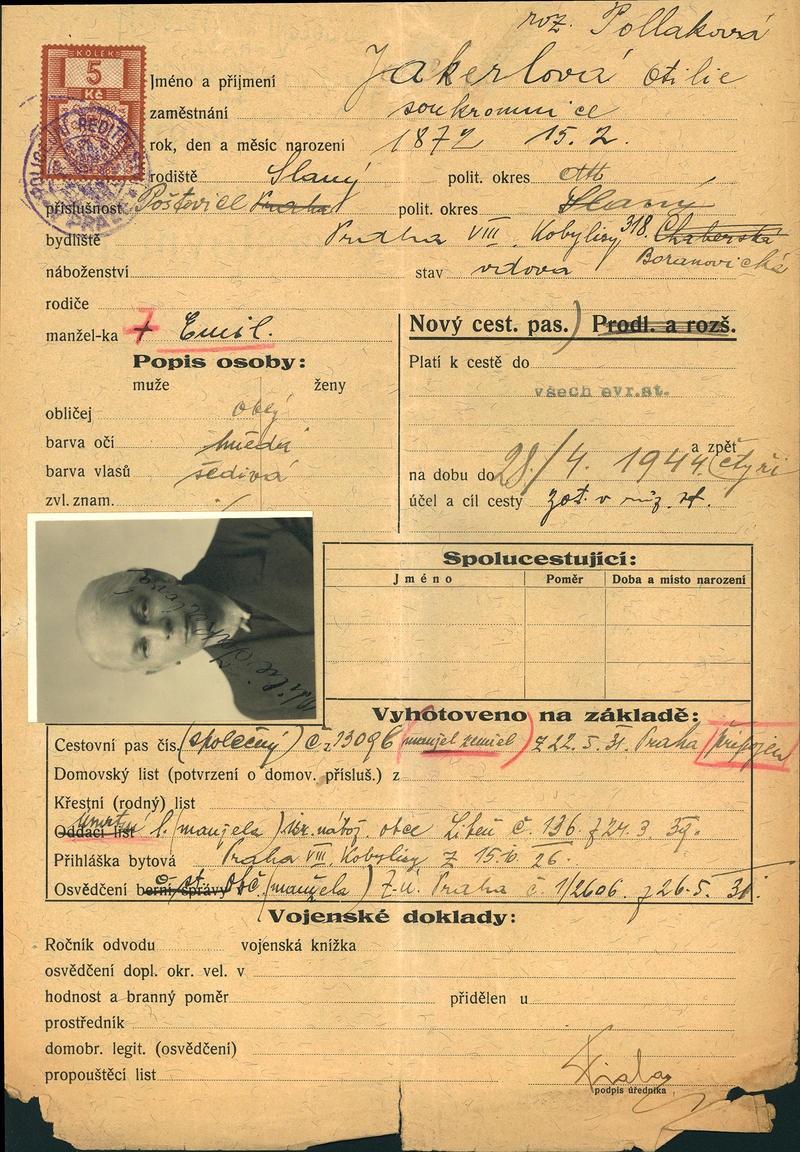 roz. Pollaková
KOLEK
5
Kč
Jméno a příjmení Jakerlová Otilie
zaměstnání soukromnice
rok, den a měsíc narození 1872 15.2.
rodiště Slaný polit. okres
příslušnost Poštovice Praha polit. okres Slaný
bydliště Praha VIII, Kobylisy 318. Chaberská
Boranovická
náboženství stav vdova
rodiče
manžel-ka + Emil.
Nový cest. pas.) Prodl. a rozš.
Popis osoby:
muže ženy
obličej obl.
barva očí hnědá
barva vlasů šedivá
zvl. znam.
Platí k cestě do
všech evr.st.
a zpět
na dobu do 28/4. 1944. (čtyři
účel a cíl cesty zot. v růz. st.
Spolucestující:
Jméno Poměr Doba a místo narození
Vyhotoveno na základě:
Cestovní pas čís. (společný) č. 13096 (manžel zemřel) z 22.5.31. Praha (připojen
Domovský list (potvrzení o domov. přísluš.) z
Křestní (rodný) list
Úmrtní
Oddací list l. (manžela) isr. nábož. obce Libeň č. 136. z 24.3. 39.
Přihláška bytová Praha VIII, Kobylisy z 15.10. 26.
Osvědčení berní správy č. st. obč. (manžela) Z.ú. Praha č. 1/2606. z 26.5. 31.
Vojenské doklady:
Ročník odvodu vojenská knížka
osvědčení dopl. okr. vel. v
hodnost a branný poměr přidělen u
prostředník
domobr. legit. (osvědčení)
propouštěcí list
Fiala
podpis úředníka